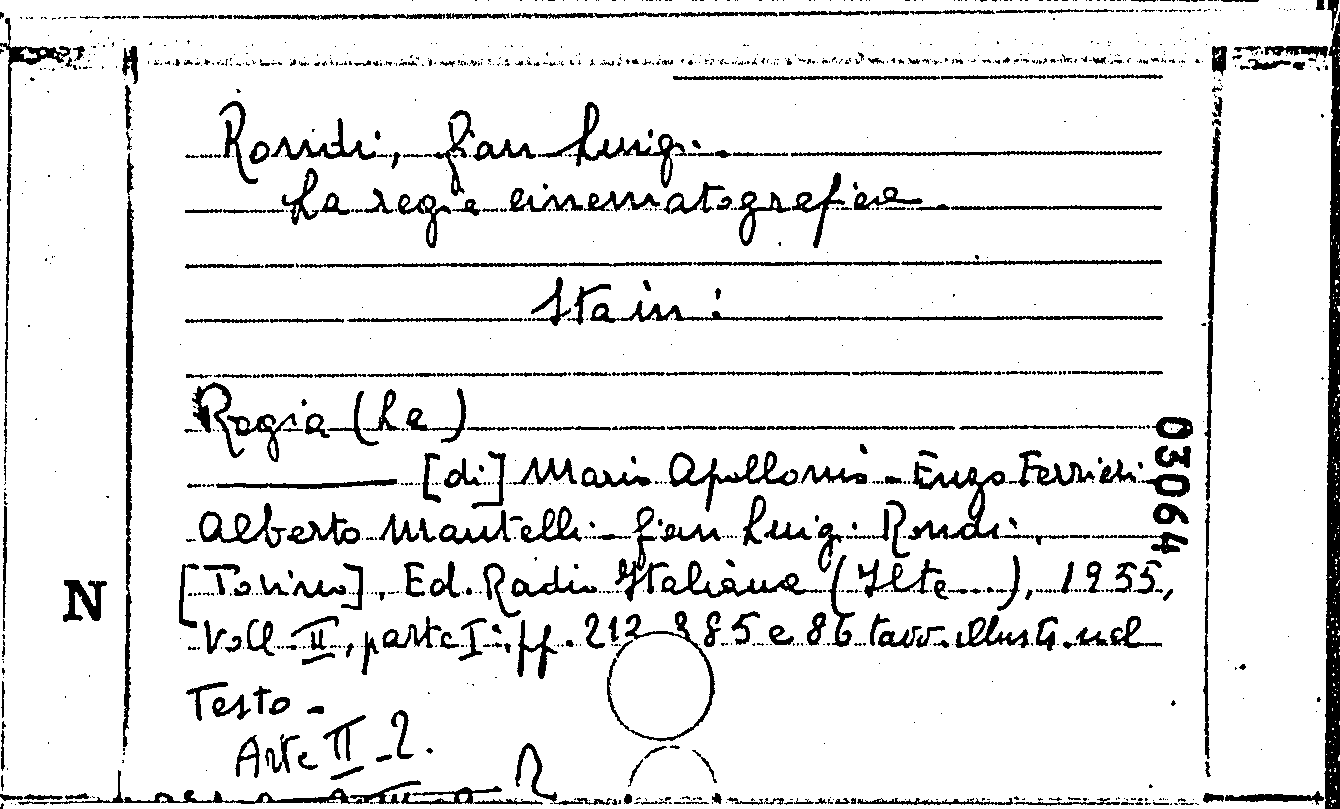 Rondi, Gian Luigi.
La regia cinematografica.
Sta in:
Regia (La)
[di] Mario Apollonio - Enzo Ferrieri
Alberto Mantelli - Gian Luigi Rondi.
[Torino], Ed. Radio Italiana (Ilte...), 1955,
Voll. II, parte I: pp. 212, 385 e 86 tavv. illustr. nel
Testo -
Arte II-2.
N
03064